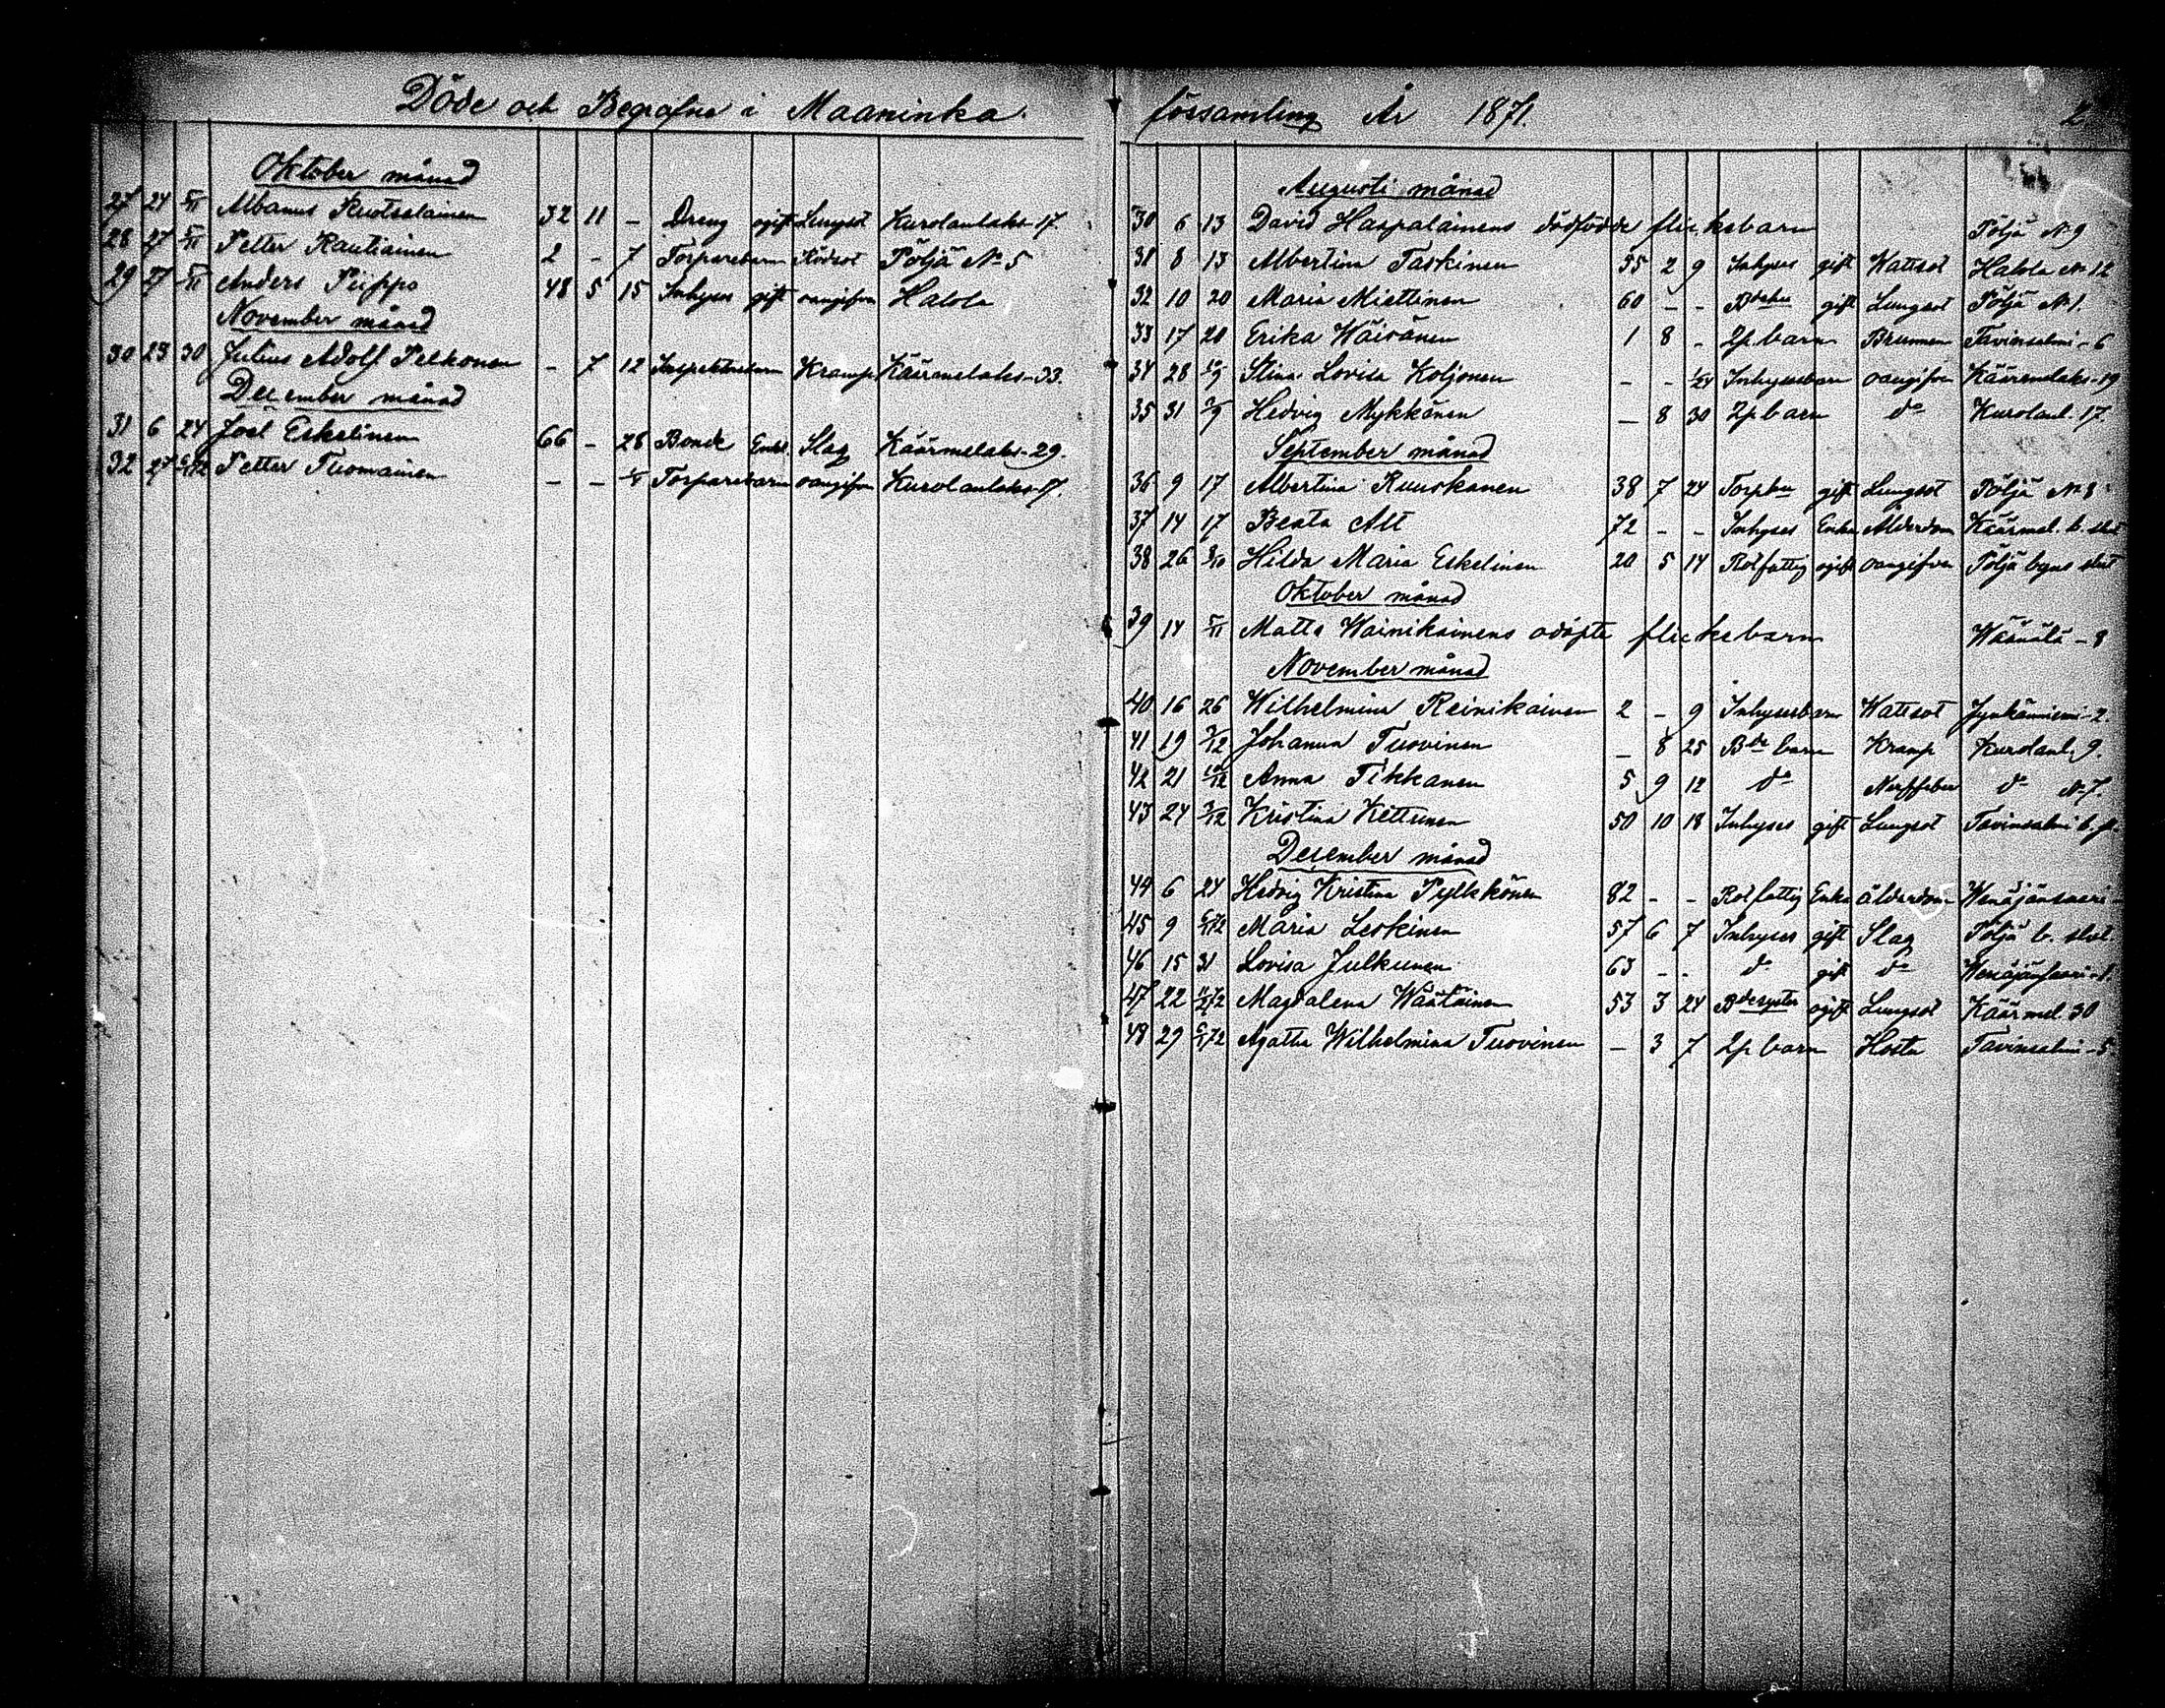 Döde och Begrafne i Maaninka
Oktober månad
27 24 5/11 Albanus Ruotsalainen 32 11 - Dreng ogift Lungsot Kurolanlaks-17.
28 27 5/11 Petter Rautiainen 2 - 7 Torparebarn Rödsot Pöljä No 5
29 27 5/11 Anders Piippo 48 5 15 Inhyses gift oangifven Halola
November månad
30 23 30 Julius Adolf Pelkonen - 7 12 Kramp Käärmelaks-33.
December månad
31 6 24 Joel Eskelinen 66 - 28 Bonde Enkl. Slag Käärmelaks-29.
32 27 Petter Tuomainen - - Torparebarn oangifven Kurolanlaks-17.
församling År 1871. 2.
Augusti månad
30 6 13 David Haapalainens dödfödde flickebarn Pöljä No 9
31 8 13 Albertina Taskinen 55 2 9 Inhyses gift Wattsot Halola No 12
32 10 20 Maria Miettinen 60 - - gift Lungsot Pöljä No 1.
33 17 20 Erika Wäisänen 1 8 - 2p. barn Brunnen Tavinsalmi-6
34 28 10/9 Stina Lovisa Koljonen - - 1/24 Inhysesbarn oangifven Käärmelaks-19
35 31 Hedvig Mykkänen - 8 30 2p barn do Kurolanl. 17.
September månad
36 9 17 Albertina Ruuskanen 38 7 24 Torphu gift Lungsot Pöljä No 8
37 14 17 Beata Alt 72 - - Inhyses Enka Ålderdom Käärmel. b. slut
38 26 8/10 Hilda Maria Eskelinen 20 5 14 Rotfattig ogift oangifven Pöljä byns slut
Oktober månad
39 14 5/11 Matts Wainikainens odöpte flickebarn Wäänälä-8
November månad
40 16 26 Wilhelmina Reinikainen 2 - 9 Inhysesbarn Wattsot Jynkänniemi-2.
41 19 3/12 Johanna Tuovinen - 8 25 Bde barn Kramp Kurolanl. 9.
42 21 10/12 Anna Tikkanen 5 9 12 do Nerffeber do No 7.
43 24 3/12 Kristina Kettunen 50 10 18 Inhyses gift Lungsot Tavinsalmi b. s.
December månad
44 6 24 Hedvig Kristina Pylkkönen 82 - - Rotfattig Enka ålderdom Wenäjänsaari-
45 9 Maria Leskinen 57 6 7 Inhyses gift Slag Pöljä b. slut.
46 15 31 Lovisa Julkunen 63 - - do gift do Wenäjänsaari-1.
47 22 Magdalena Wäätäinen 53 3 24 Bdesyster ogift Lungsot Käärmel. 30
48 29 Agatha Wilhelmina Tuovinen - 3 7 2p barn Hosta Tavinsalmi-5.